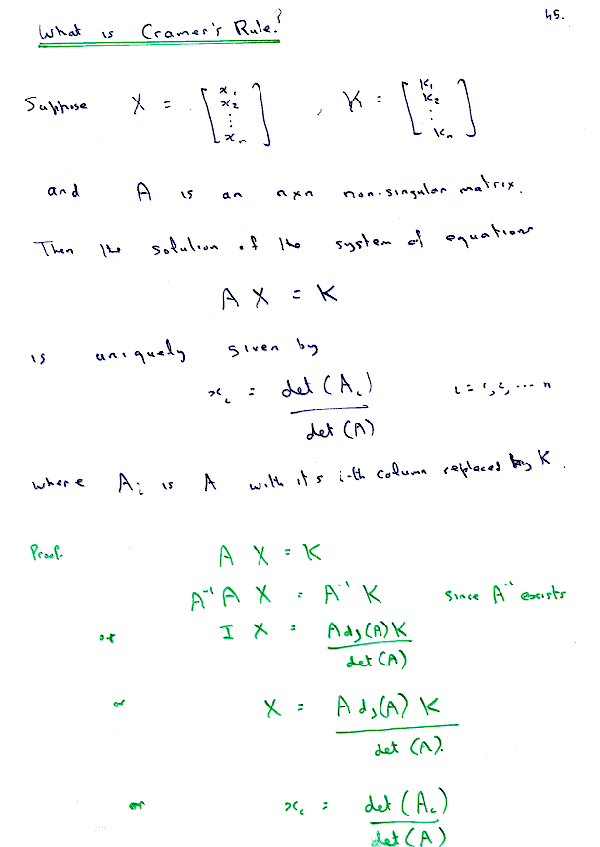 What is Cramer's Rule? 45.
Suppose X = [x₁ x₂ ⋮ xₙ] , K = [k₁ k₂ ⋮ kₙ]
and A is an nxn non-singular matrix.
Then the solution of the system of equations
A X = K
is uniquely given by
xᵢ = det(Aᵢ) / det(A) i = 1, 2, ... n
where Aᵢ is A with it's i-th column replaced by K.
Proof. A X = K
A⁻¹ A X = A⁻¹ K since A⁻¹ exists
or I X = Adj(A) K / det(A)
or X = Adj(A) K / det(A).
or xᵢ = det(Aᵢ) / det(A)